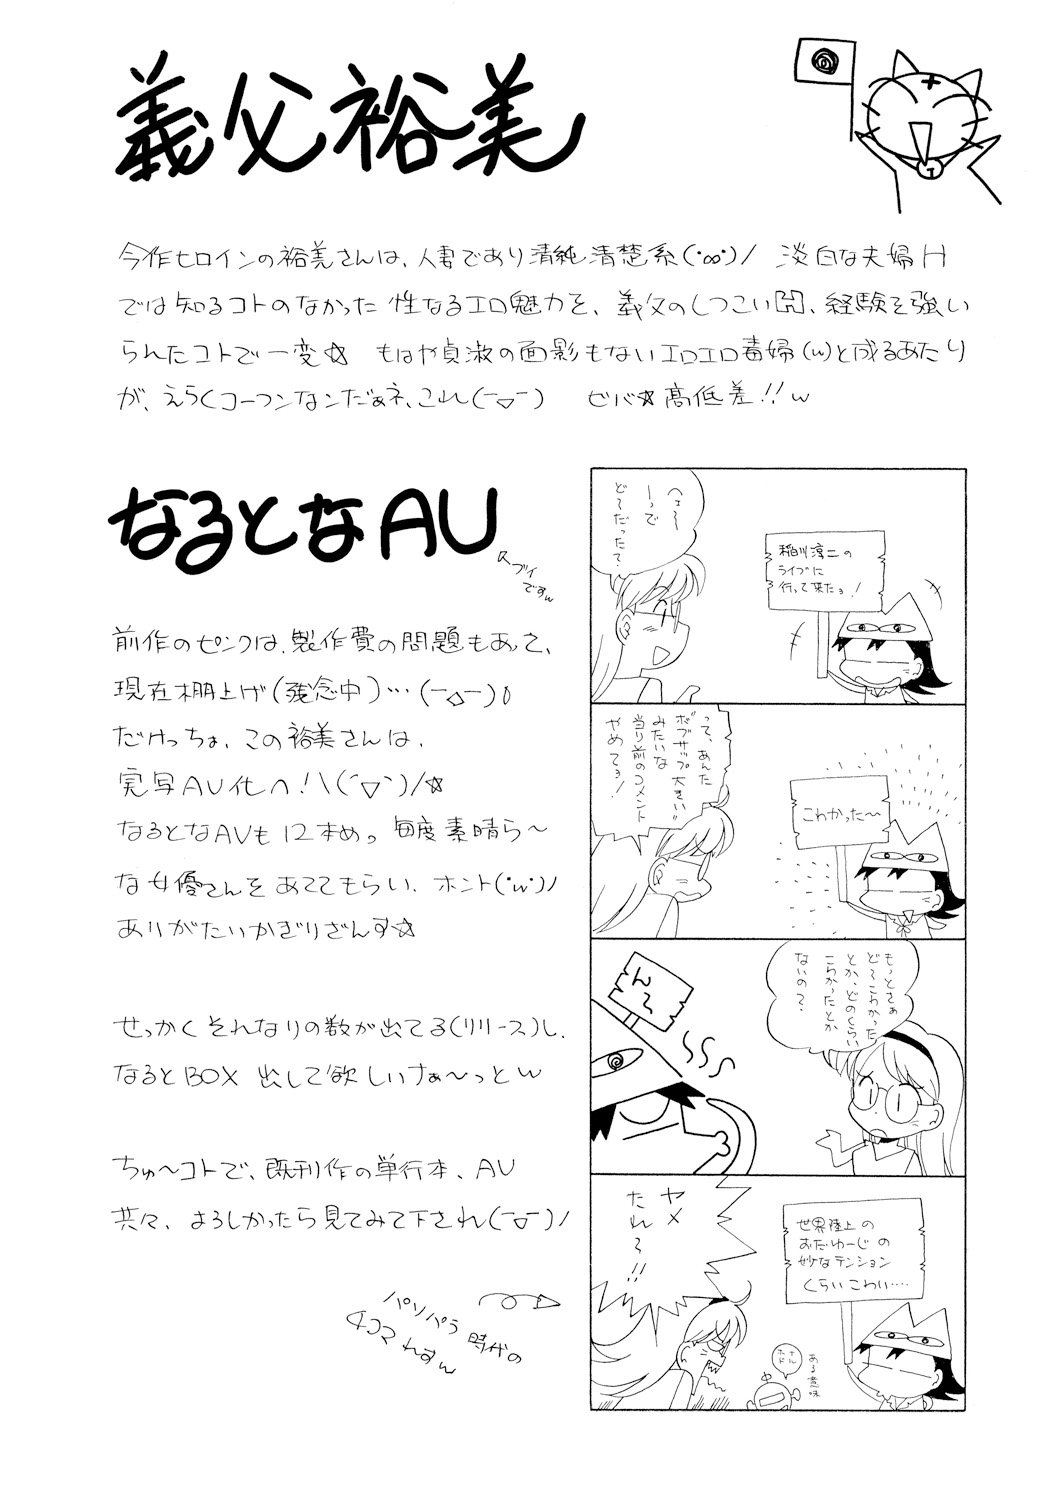 義父裕美
今作ヒロインの裕美さんは、人妻であり清純清楚系(・∞・)/ 淡白な夫婦H
では知るコトのなかった 性なるエロ魅力を、義父のしつこいH、経験を強い
られたコトで一変☆ もはや貞淑の面影もないエロエロ毒婦(w)と成るあたり
が、えらくコーフンなンだぁネ、これ(ー▽ー) ビバ☆高低差!!w
なるとなAV
スブイ
ですw
前作のピンクは、製作費の問題もあって、
現在棚上げ(残念中)…(ー△ー)。
だけっちょ、この裕美さんは、
実写AV化へ!\(´▽`)/☆
なるとなAVも12本めっ 毎度素晴ら〜
な女優さんをあててもらい、ホント(・w・)/
ありがたいかぎりざんす☆
せっかくそれなりの数が出てる(リリース)し、
なるとBOX 出して欲しいけぁ〜っとw
ちゅ〜コトで、既刊作の単行本、AV
共々、よろしかったら見てみて下され(ー▽ー)/
パソパラ時代の
4コマれすw
へェ〜
ーっで
ど〜だった?
稲川淳二の
ライブに
行って来たョ!
って、あんた
ボブサップ大きい"
みたいな
当り前のコメント
やめてョ!
こわかった〜
もっとさぁ
ど〜こわかった
とか、どのくらい
こわかったとか
ないの?
ん〜
ヤメ
たれ〜!!
世界陸上の
おだゆーじの
妙なテンション
くらいこわい‥‥
ナル
ホド
ある意味